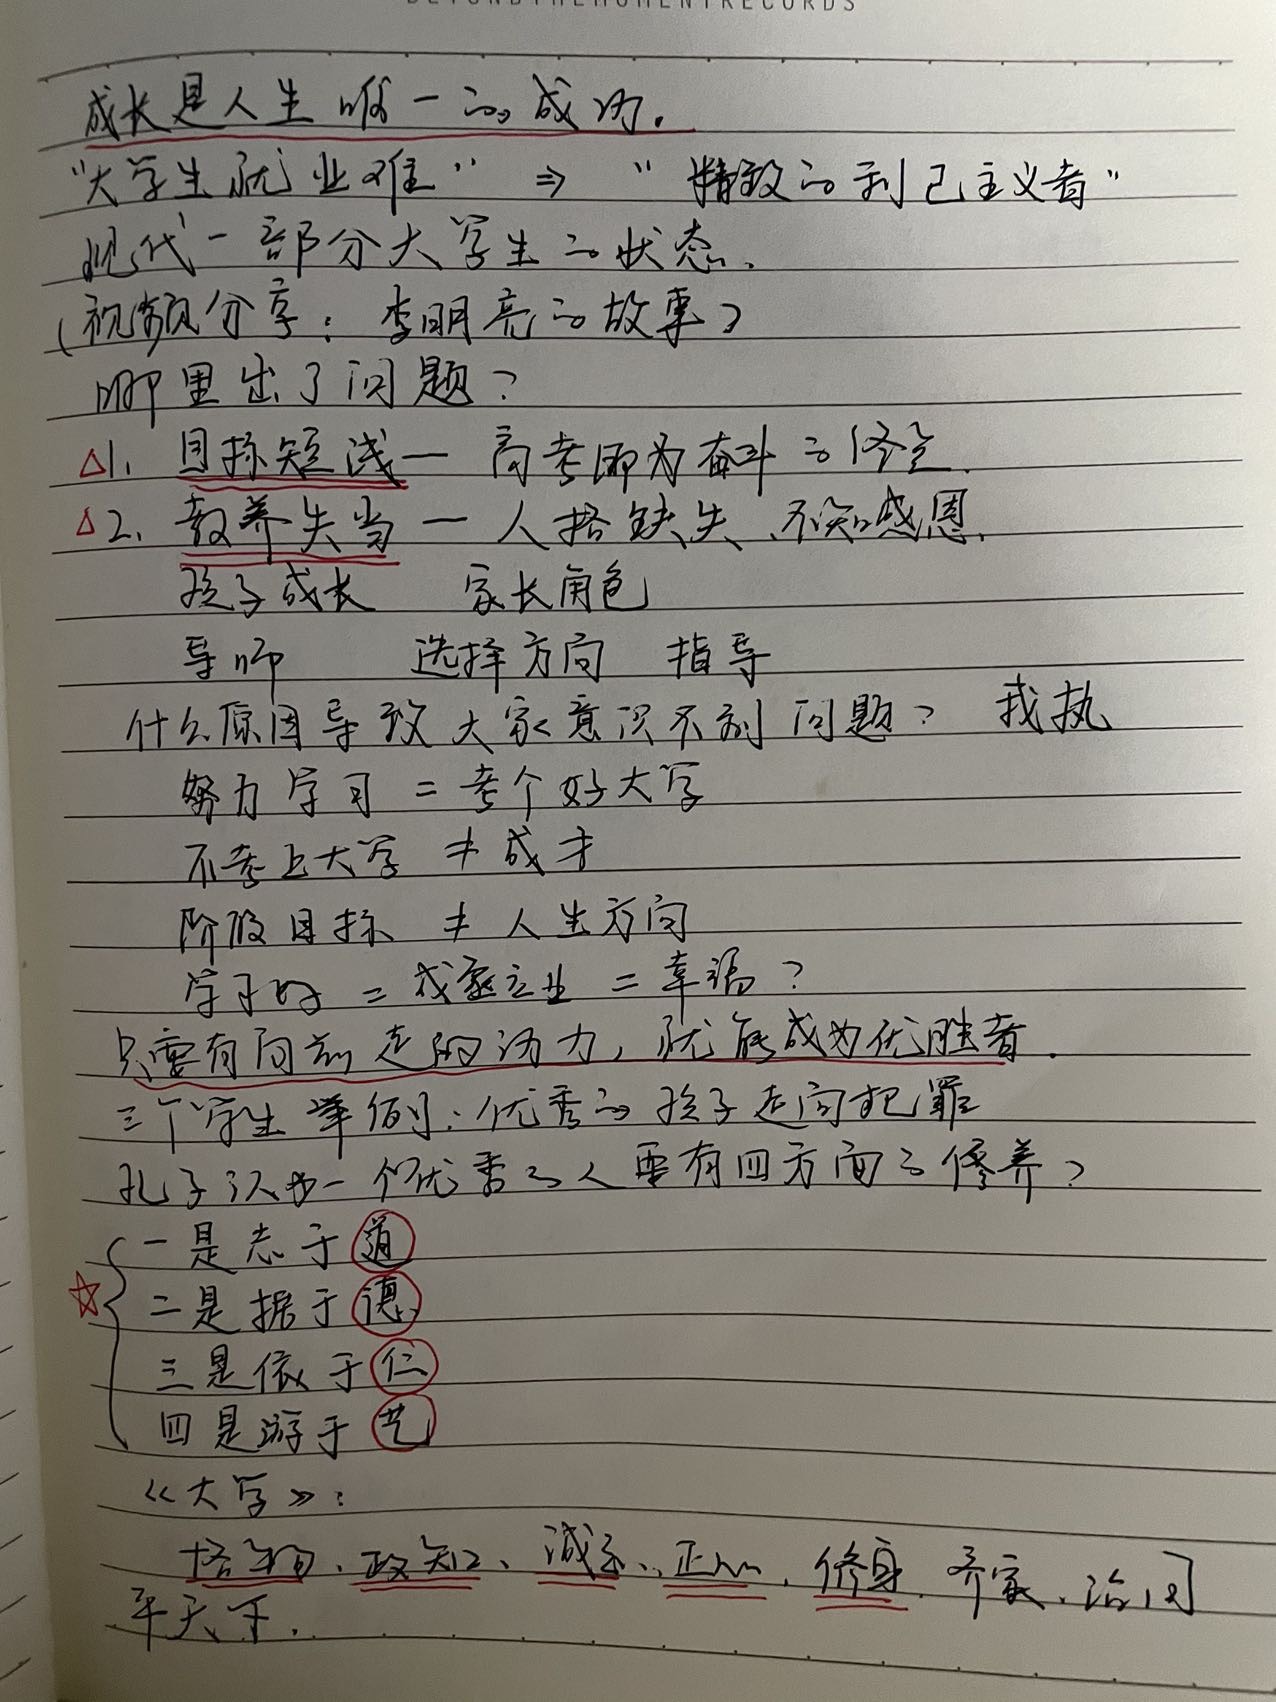 BEYONDTHEMOMENTRECORDS
成长是人生唯一的成功.
"大学生就业难" ⇒ "精致的利己主义者"
现代一部分大学生的状态.
(视频分享: 李明亮的故事)
哪里出了问题?
△1. 目标短浅— 高考即为奋斗的终点.
△2. 教养失当— 人格缺失、不知感恩.
孩子成长 家长角色
导师 选择方向 指导
什么原因导致大家意识不到问题? 我执
努力学习 = 考个好大学
不考上大学 ≠ 成才
阶段目标 ≠ 人生方向
学习好 = 成家立业 = 幸福?
只要有向前走的动力, 就能成为优胜者.
三个学生举例: 优秀的孩子走向犯罪
孔子认为一个优秀的人要有四方面的修养?
☆ 一是志于道
二是据于德
三是依于仁
四是游于艺
《大学》:
格物、致知、诚意、正心、修身、齐家、治国
平天下.